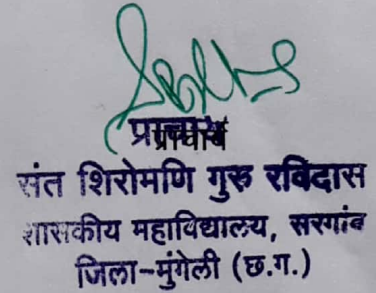 प्राचार्य
प्राचार्य
संत शिरोमणि गुरु रविदास
शासकीय महाविद्यालय, सरगांव
जिला-मुंगेली (छ.ग.)